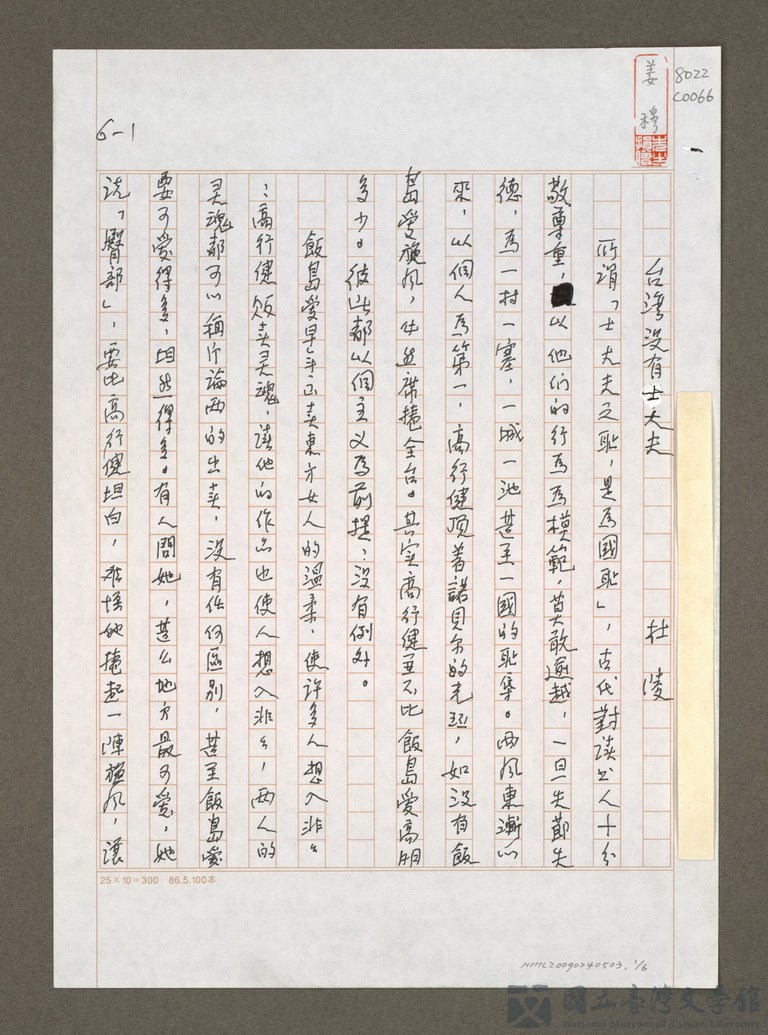 8022
C0066
姜穆
6-1
台灣沒有士大夫 杜陵
所謂「士大夫之恥,是為國恥」,古代對讀書人十分
敬尊重,以他们的行為為模範,莫敢逾越,一旦失節失
德,為一村一寨,一城一池甚至一國的恥辱。西風東漸以
來,以個人為第一,高行健頂着諾貝尔的光环,如沒有飯
島愛旋风,仍然席捲全台。其实高行健並不比飯島愛高明
多少。彼此都以個主义為前提;沒有例外。
飯島愛早年正卖東方女人的溫柔,使許多人想入非々
;高行健贩卖灵魂,讓他的作品也使人想入非々,两人的
灵魂都可以稱斤論两的出卖,沒有任何區别,甚至飯島愛
要可愛得多,坦然得多。有人問她,甚么地方最可愛,她
説「臀部」,要比高行健坦白,难怪她捲起一陣旋风,讓
25×10=300 86.5.100本
NMTL20090240503. 1/6
國立臺灣文學館
National Museum of Taiwan Literature